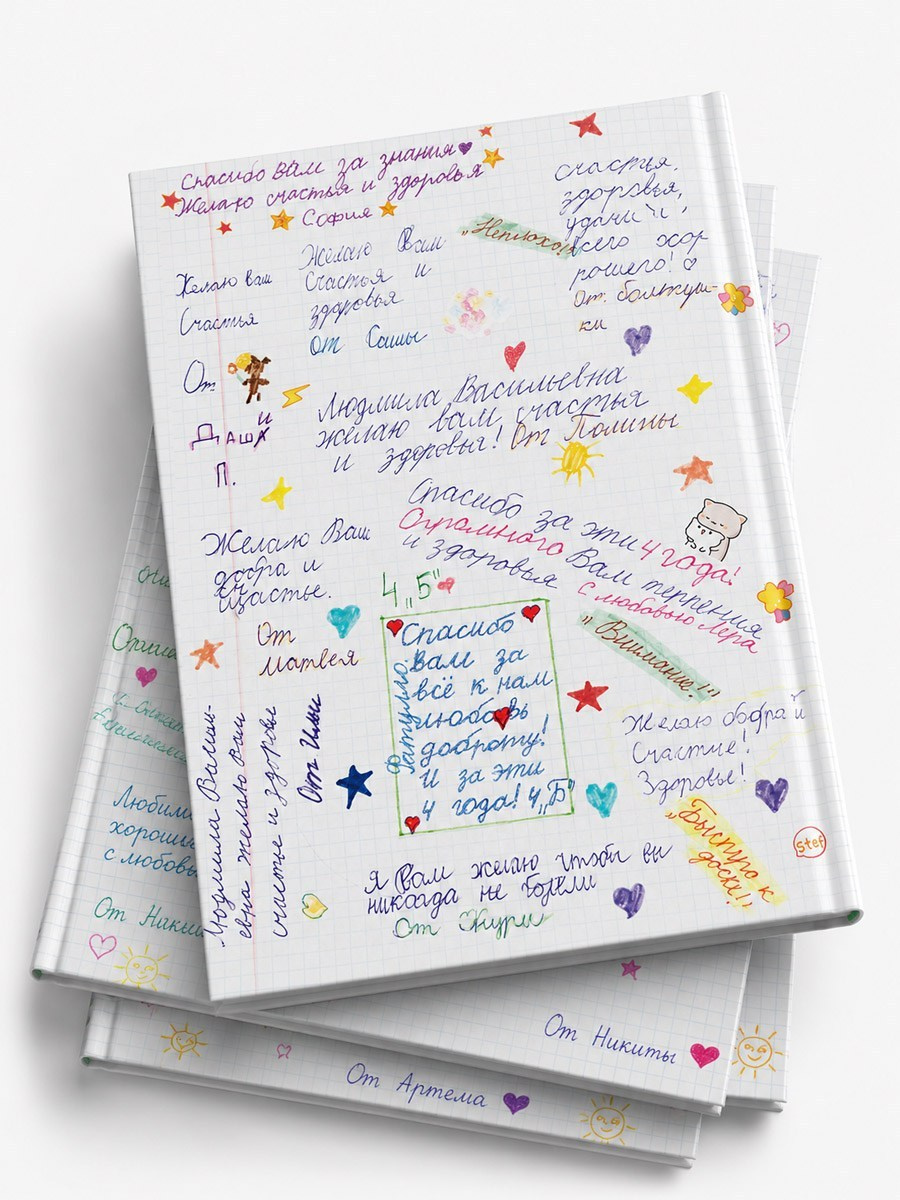 Спасибо вам за знания
Желаю счастья и здоровья
София
счастья,
здоровья,
удачи и
всего хор
рошего!
От болтуш-
ки
„Неплохо!"
Желаю вам
Счастья
От
Даши
П.
Желаю Вам
Счастья и
здоровья
От Саши
Людмила Васильевна
желаю вам счастья
и здоровья! От Полины
Спасибо за эти 4 года!
Огромного Вам терпения
и здоровья
С любовью Лера
Желаю Ваш
добра и
щастье.
От
Матвея
4„Б"
Спасибо
вам за
всё к нам
любовь
доброту!
И за эти
4 года! 4„Б"
„Внимание!"
Желаю
Счастие!
Здоровье!
„Быстро к
доске!"
stef
евна желаю Вам
счастье и здоровье
От Ильи
Я Вам желаю чтобы вы
никогда не болели
Люби
хороши
с любовь
От Ники
От Никиты
От Артема